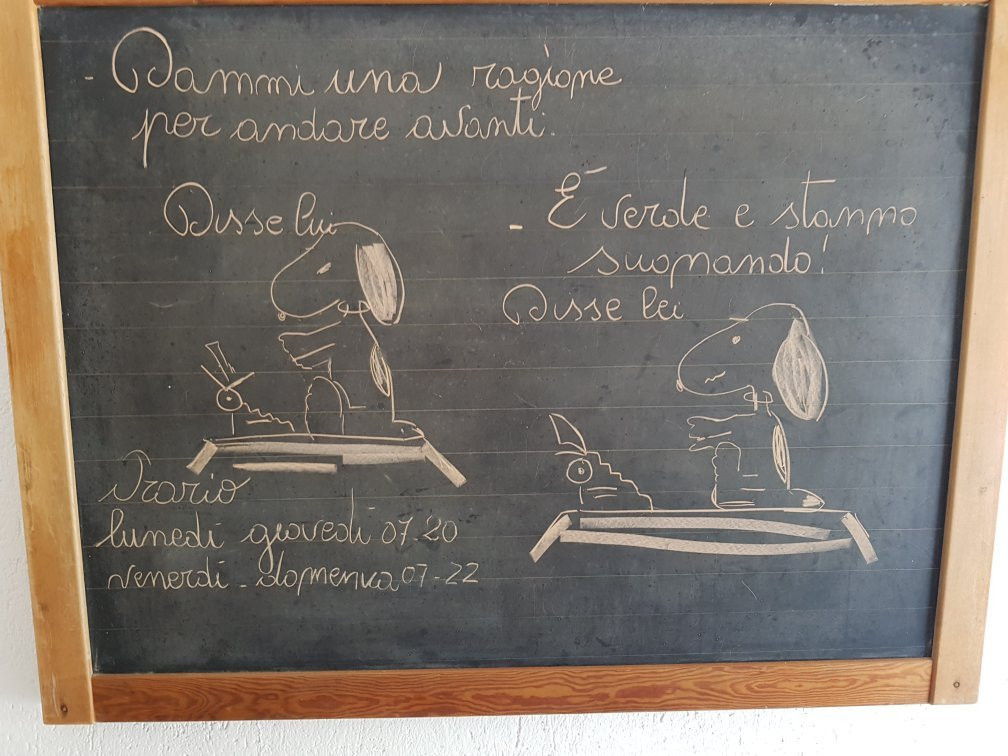 - Dammi una ragione
per andare avanti.
Disse lui
- È verde e stanno
suonando!
Disse lei
Orario
lunedì giovedì 07-20
venerdì - domenica 07-22